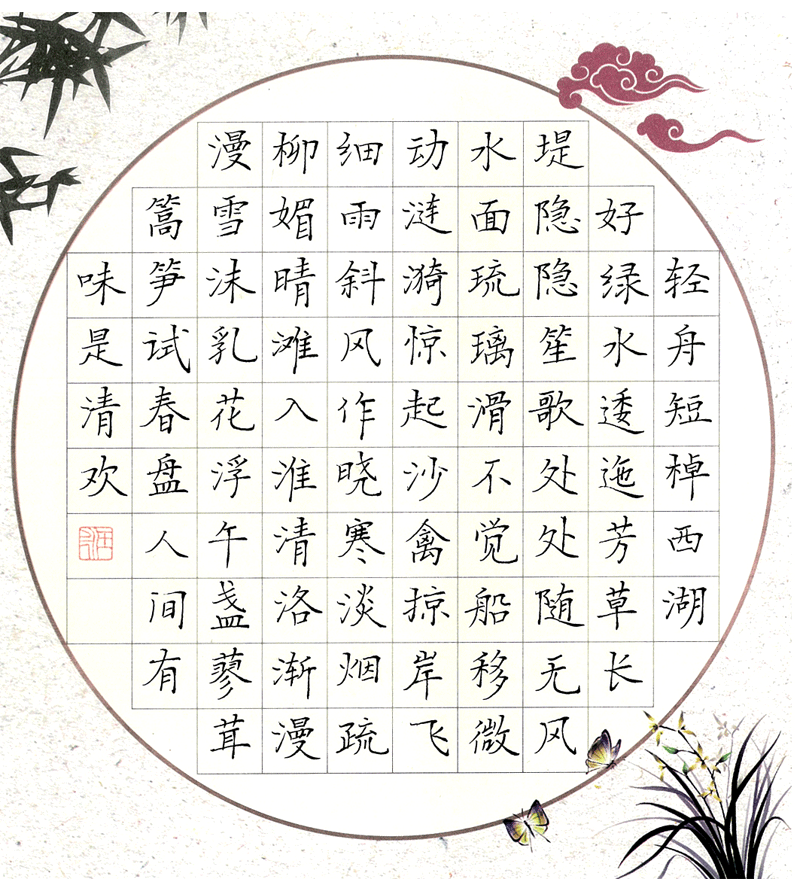 轻舟短棹西湖
好绿水逶迤芳草长
堤隐隐笙歌处处随无风
水面琉璃滑不觉船移微
动涟漪惊起沙禽掠岸飞
细雨斜风作晓寒淡烟疏
柳媚晴滩入淮清洛渐漫
漫雪沫乳花浮午盏蓼茸
蒿笋试春盘人间有
味是清欢